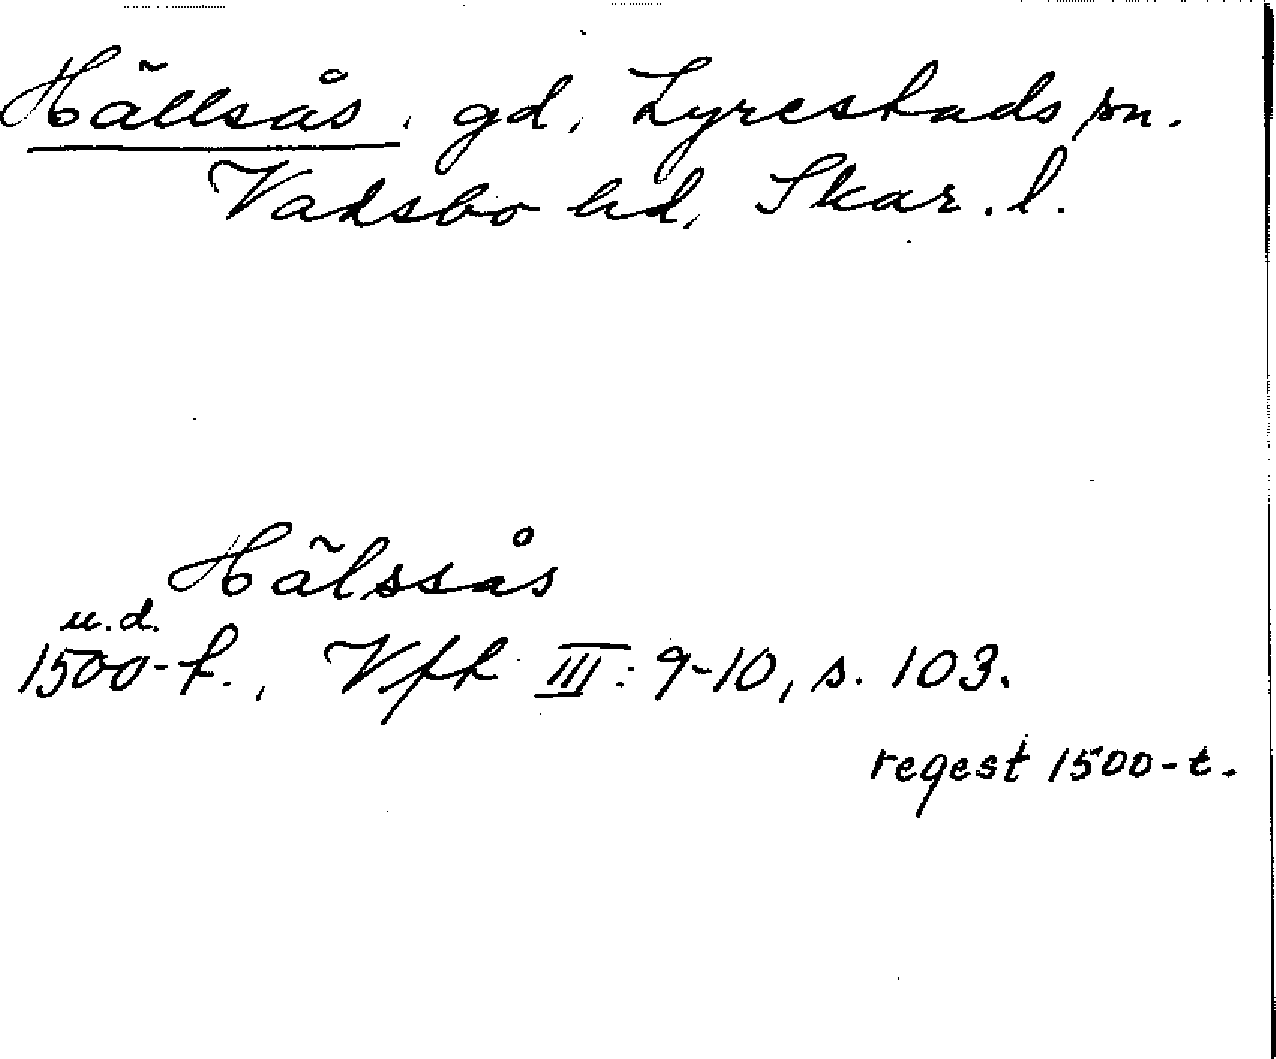 Hällsås, gd, Lyrestads sn.
Vadsbo hd, Skar. l.
Hälssås
u.d.
1500-t., Vft III: 9-10, s. 103.
regest 1500-t.